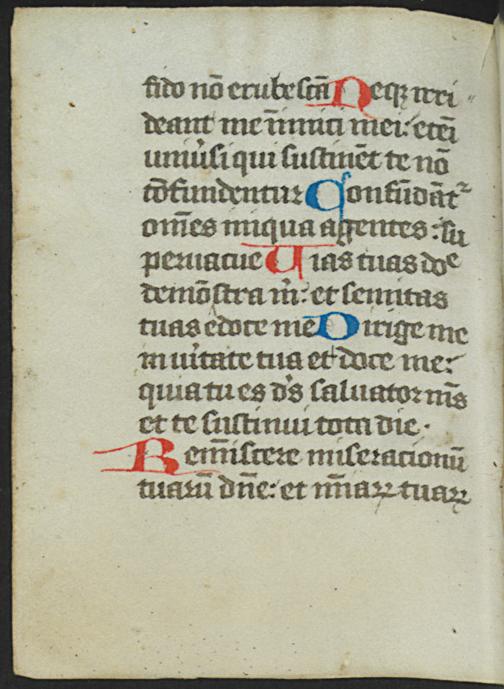 fido nō erubescā Neqꝫ irri
deant me inimici mei: etēi
uniūsi qui sustinēt te nō
cōfundentur Confūdāt᷑
om̄es iniqua agentes: su
peruacue Uias tuas dn̄e
demōstra m̄: et semitas
tuas edoce mē Dirige me
in uītate tua et doce me:
quia tu es ds̄ saluator ms̄
et te sustinui tota die.
Rem̄iscere miseracionū
tuarū dn̄e: et mīaꝝ tuaꝝ